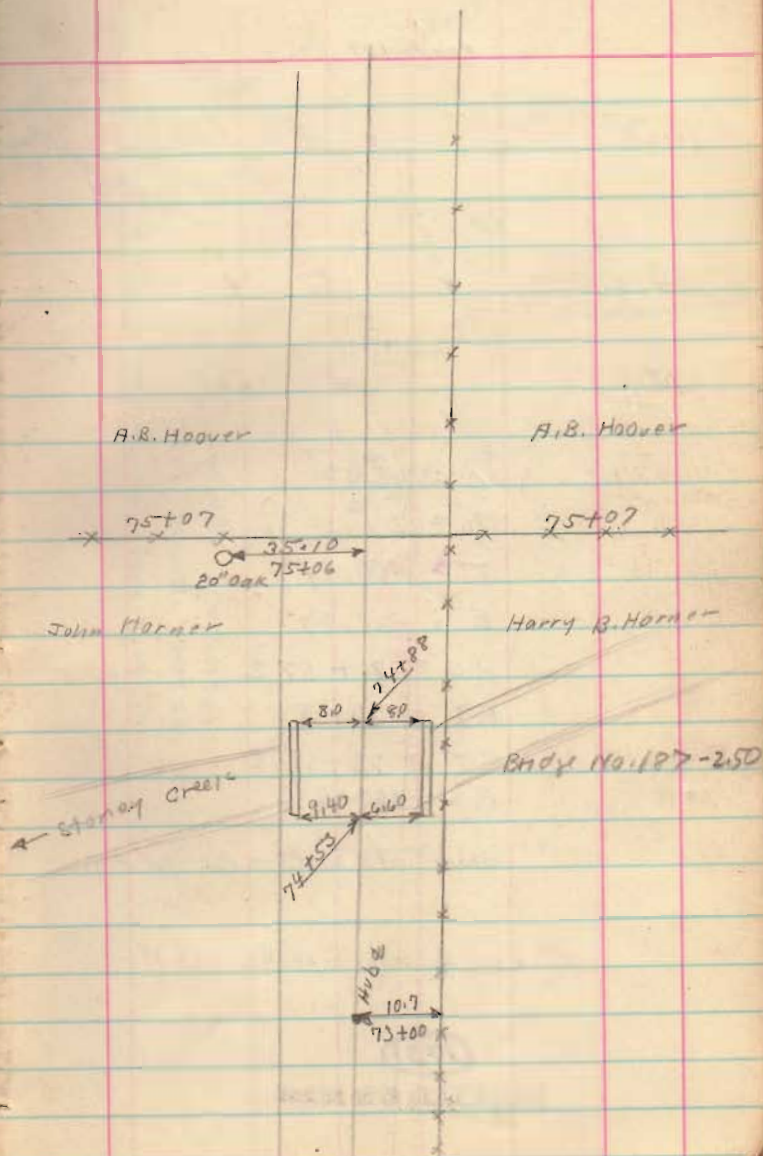 A.B. Hoover
A.B. Hoover
75+07
75+07
35.10
75+06
20" Oak
John Harner
Harry B. Harner
74+88
8.0
8.0
Bridge No. 187-2.50
Stoney Creek
9.40
6.60
74+53
Hub
10.7
73+00